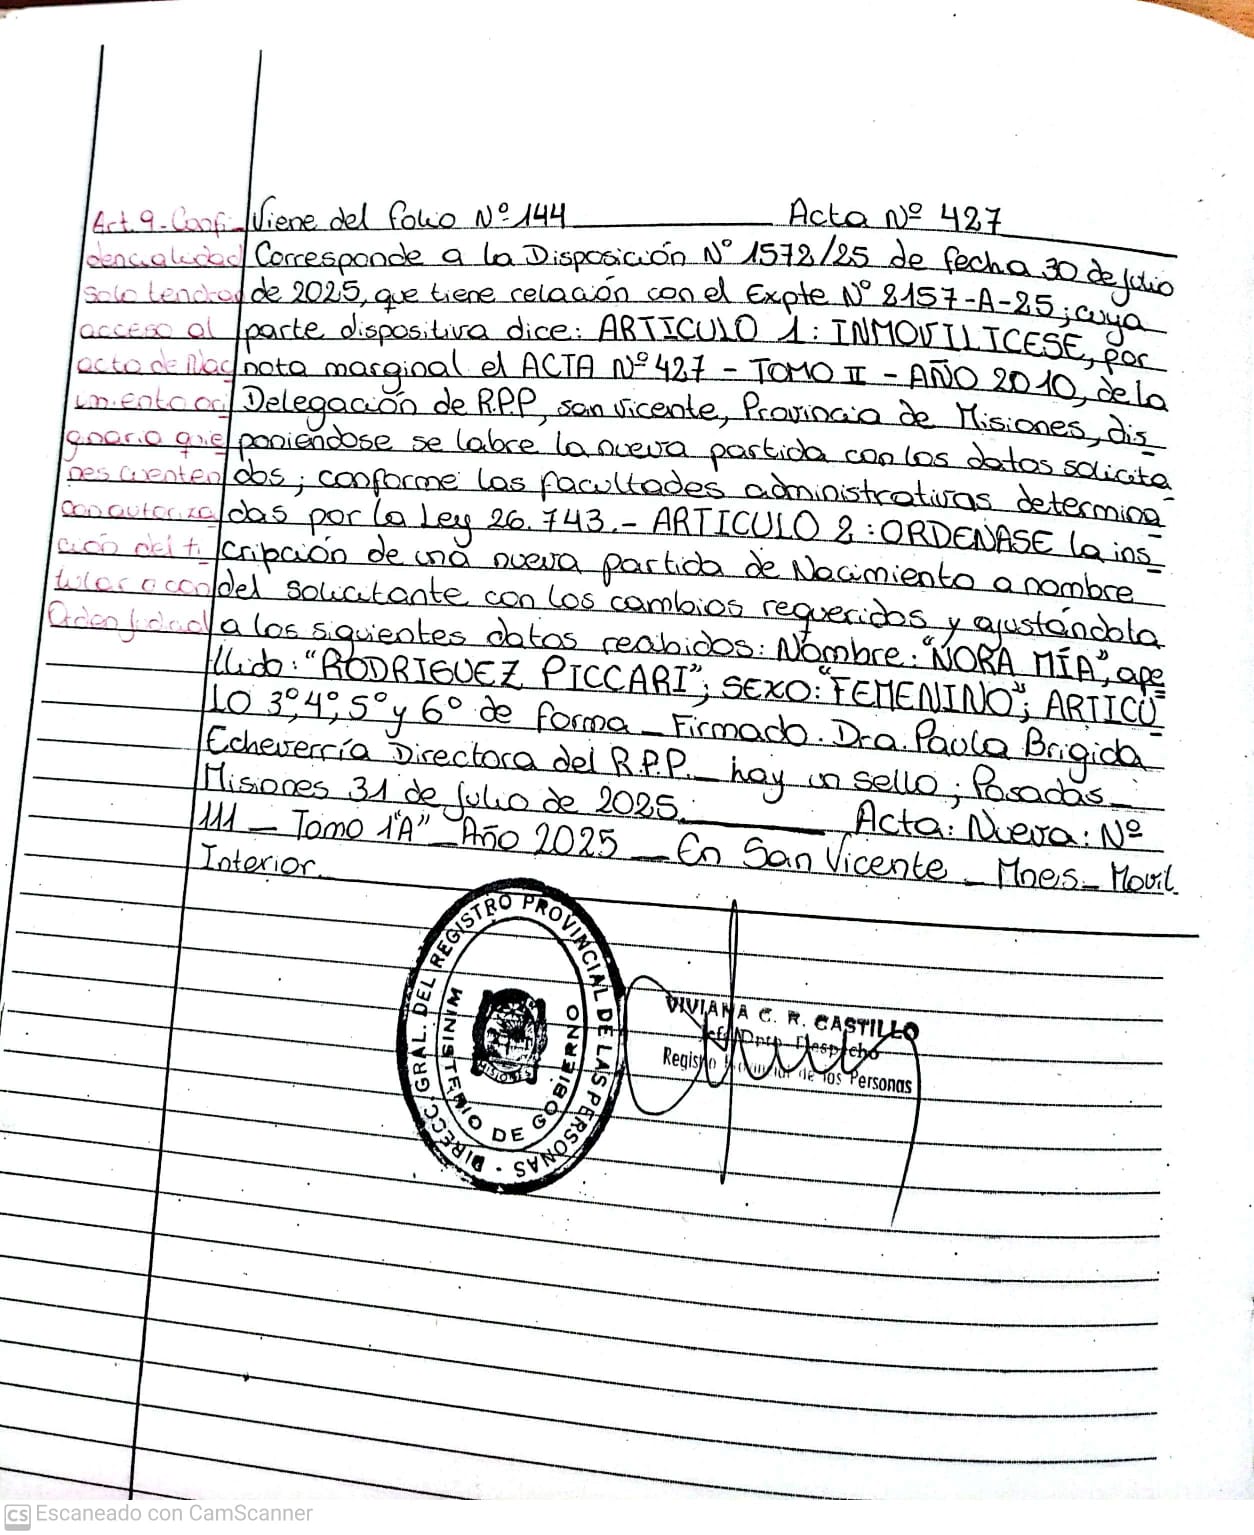 Art. 9 - Confi
dencialidad
solo tendran
acceso al
acta de Nac
imiento ori
ginario quie
nes cuenten
con autoriza
ción del ti
tular o con
Orden Judicial
Viene del folio Nº 144 Acta Nº 427
Corresponde a la Disposición Nº 1572/25 de fecha 30 de Julio
de 2025, que tiene relación con el Expte Nº 8157-A-25; cuya
parte dispositiva dice: ARTICULO 1: INMOVILICESE, por
nota marginal el ACTA Nº 427 - TOMO II - AÑO 2010, de la
Delegación de R.P.P, san vicente, Provincia de Misiones, dis
poniéndose se labre la nueva partida con los datos solicita
dos; conforme las facultades administrativas determina
das por la Ley 26.743.- ARTICULO 2: ORDENASE la ins
cripción de una nueva partida de Nacimiento a nombre
del solicitante con los cambios requeridos y ajustándola
a los siguientes datos recibidos: Nombre: "NORA MÍA", ape
llido: "RODRIGUEZ PICCARI"; SEXO: "FEMENINO"; ARTICU
LO 3º, 4º, 5º y 6º de forma - Firmado. Dra. Paula Brigida
Echeverría Directora del R.P.P. - hay un sello; Posadas -
Misiones 31 de Julio de 2025. Acta: Nueva: Nº
111 - Tomo 1"A" - Año 2025 - En San Vicente - Mnes - Movil
Interior.
DIRECC. GRAL. DEL REGISTRO PROVINCIAL DE LAS PERSONAS
MINISTERIO DE GOBIERNO
MISIONES
VIVIANA C. R. CASTILLO
Jefa Dpto Despacho
Registro Provincial de las Personas
CS Escaneado con CamScanner